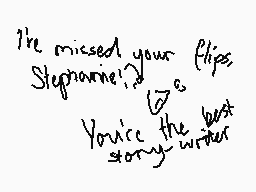 I've missed your flips,
Stephanie!
You're the best
story-writer